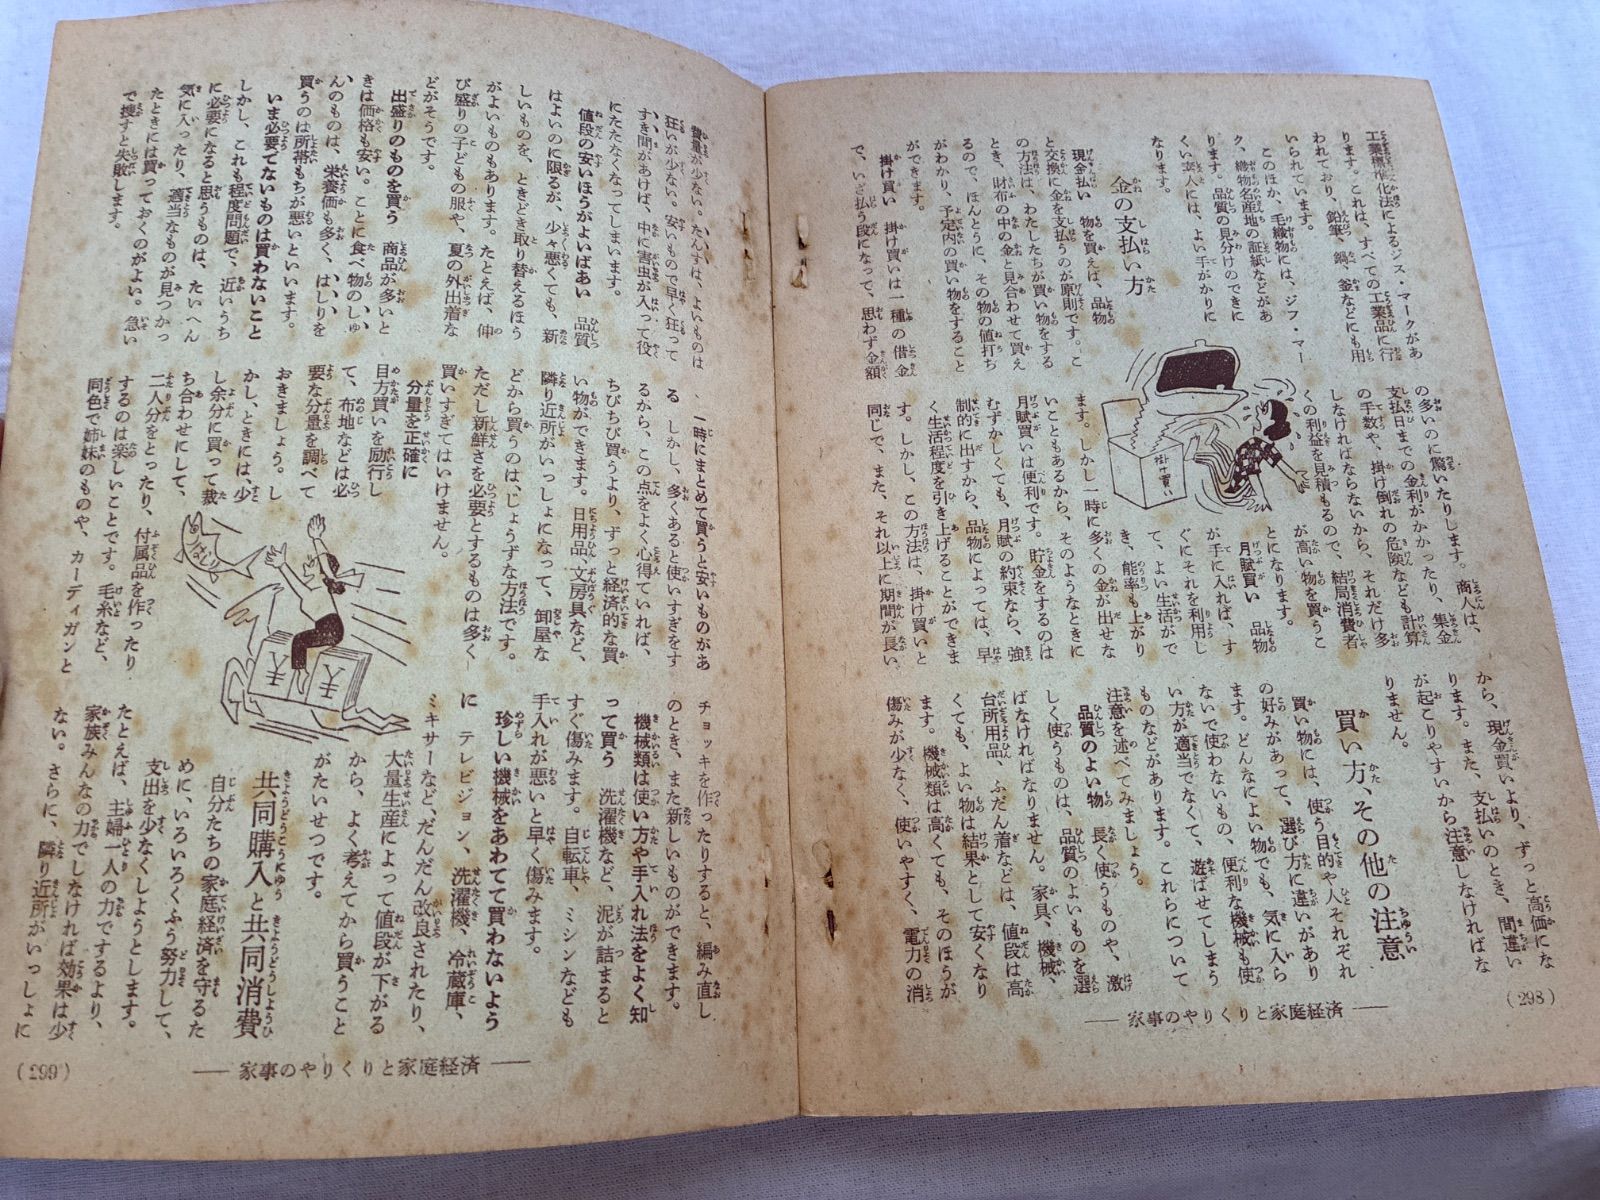 工業標準化法によるジス・マークがあ
ります。これは、すべての工業品に行
われており、鉛筆、鍋、釜などにも用
いられています。
このほか、毛織物には、ジフ・マー
ク、織物名産地の証紙などがあ
ります。品質の見分けのできに
くい素人には、よい手がかりに
なります。
金の支払い方
現金払い 物を買えば、品物
と交換に金を支払うのが原則です。こ
の方法は、わたしたちが買い物をする
とき、財布の中の金と見合わせて買え
るので、ほんとうに、その物の値打ち
がわかり、予定内の買い物をすること
ができます。
掛け買い 掛け買いは一種の借金
で、いざ払う段になって、思わず金額
の多いのに驚いたりします。商人は、
支払日までの金利がかかったり、集金
の手数や、掛け倒れの危険なども計算
しなければならないから、それだけ多
くの利益を見積もるので、結局消費者
が高い物を買うこ
とになります。
月賦買い 品物
が手に入れば、す
ぐにそれを利用し
て、よい生活がで
き、能率も上がり
ます。しかし一時に多くの金が出せな
いこともあるから、そのようなときに
月賦買いは便利です。貯金をするのは
むずかしくても、月賦の約束なら、強
制的に出すから、品物によっては、早
く生活程度を引き上げることができま
す。しかし、この方法は、掛け買いと
同じで、また、それ以上に期間が長い
から、現金買いより、ずっと高価にな
ります。また、支払いのとき、間違い
が起こりやすいから注意しなければな
りません。
買い方、その他の注意
買い物には、使う目的や人それぞれ
の好みがあって、選び方に違いがあり
ます。どんなによい物でも、気に入ら
ないで使わないもの、便利な機械も使
い方が適当でなくて、遊ばせてしまう
ものなどがあります。これらについて
注意を述べてみましょう。
品質のよい物 長く使うものや、激
しく使うものは、品質のよいものを選
ばなければなりません。家具、機械、
台所用品、ふだん着などは、値段は高
くても、よい物は結果として安くなり
ます。機械類は高くても、そのほうが
傷みが少なく、使いやすく、電力の消
掛け買い
(298)
── 家事のやりくりと家庭経済 ──
費量が少ない。たんすは、よいものは
狂いが少ない。安いもので早く狂って
すき間があけば、中に害虫が入って役
にたたなくなってしまいます。
値段の安いほうがよいばあい 品質
はよいのに限るが、少々悪くても、新
しいものを、ときどき取り替えるほう
がよいものもあります。たとえば、伸
び盛りの子どもの服や、夏の外出着な
どがそうです。
出盛りのものを買う 商品が多いと
きは価格も安い。ことに食べ物のしゅ
んのものは、栄養価も多く、はしりを
買うのは所帯もちが悪いといいます。
いま必要でないものは買わないこと
しかし、これも程度問題で、近いうち
に必要になると思うものは、たいへん
気に入ったり、適当なものが見つかっ
たときには買っておくのがよい。急い
で捜すと失敗します。
一時にまとめて買うと安いものがあ
る しかし、多くあると使いすぎをす
るから、この点をよく心得ていれば、
ちびちび買うより、ずっと経済的な買
い物ができます。日用品・文房具など、
隣り近所がいっしょになって、卸屋な
どから買うのは、じょうずな方法です。
ただし新鮮さを必要とするものは多く
買いすぎてはいけません。
分量を正確に
目方買いを励行し
て、布地などは必
要な分量を調べて
おきましょう。し
かし、ときには、少
し余分に買って裁
ち合わせにして、
二人分をとったり、付属品を作ったり
するのは楽しいことです。毛糸など、
同色で姉妹のものや、カーディガンと
チョッキを作ったりすると、編み直し
のとき、また新しいものができます。
機械類は使い方や手入れ法をよく知
って買う 洗濯機など、泥が詰まると
すぐ傷みます。自転車、ミシンなども
手入れが悪いと早く傷みます。
珍しい機械をあわてて買わないよう
に テレビジョン、洗濯機、冷蔵庫、
ミキサーなど、だんだん改良されたり、
大量生産によって値段が下がる
から、よく考えてから買うこと
がたいせつです。
共同購入と共同消費
自分たちの家庭経済を守るた
めに、いろいろくふう努力して、
支出を少なくしようとします。
たとえば、主婦一人の力でするより、
家族みんなの力でしなければ効果は少
ない。さらに、隣り近所がいっしょに
── 家事のやりくりと家庭経済 ──
(299)